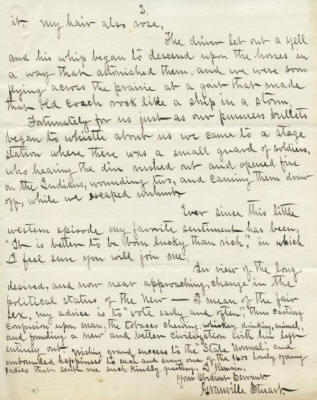 2.
it my hair also rose,
The driver let out a yell
and his whip began to descend upon the horses in
a way that astonished them, and we were soon
flying across the prairie at a gait that made
that old coach rock like a ship in a storm,
Fortunately for us just as our pursuers bullets
began to whistle about us we came to a stage
station where there was a small guard of soldiers,
who hearing the din rushed out and opened fire
on the Indians, wounding two, and causing them draw
off, while we escaped unhurt.
Ever since this little
western episode my favorite sentiment has been,
"It is better to be born lucky than rich," in which
I feel sure you will join me.
In view of the long
desired, and now near approaching, change in the
political status of the new — I mean of the fair
sex, my advice is to "vote early and often," thus casting
upon man, the tobacco chewing, whiskey drinking, animal,
and founding a new and better civilization with him left
entirely out wishing grand success to the State Normal, and
unbounded happiness to each and every one of the 1600 lovely young
ladies that send me such kindly greeting, I Remain
Your Obedient Servant
Granville Stuart.